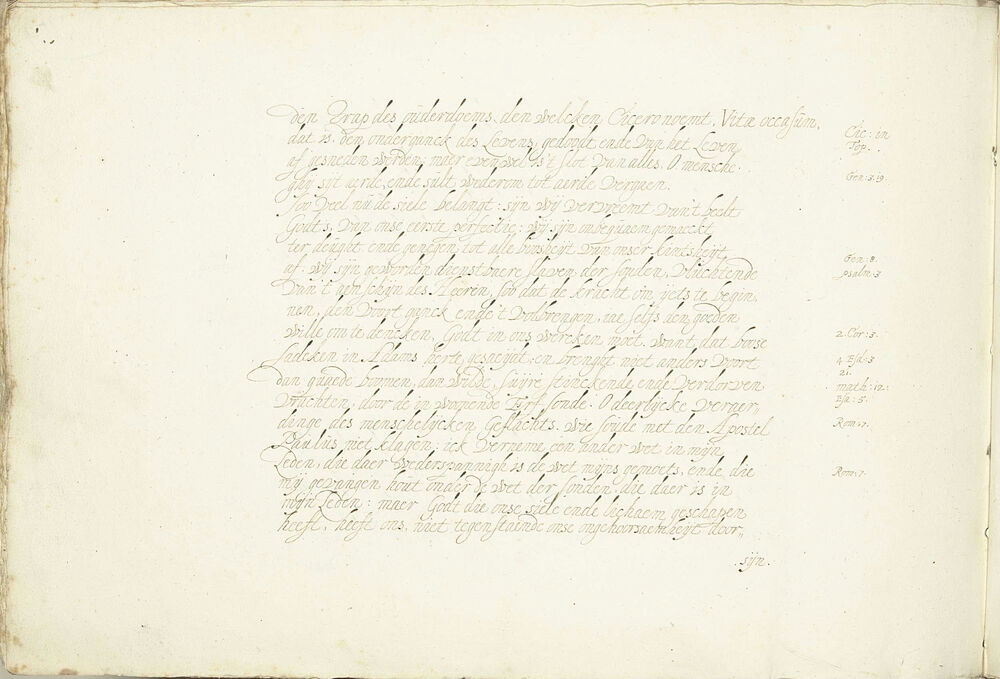 den Trap des ouderdoms, den welcken Cicero noemt, Vitæ occasum,
dat is den onderganck des Levens, gedoodt ende van het Leven
af gesneden worden, maer evenwel is't slot van alles. O mensche
ghy sijt aerde, ende sult wederom tot aerde vergaen.
Soo veel nu de siele belangt: sijn wij vervreemt van't beelt
Godts, van onse eerste perfectie: wij sijn onbequaem gemaeckt
ter deught ende genegen tot alle boosheyt van onser kintsheyt
af. wij sijn geworden dienstbaere slaven der sonden, vluchtende
van't aenschijn des Heeren, soo dat de kracht om yets te begin,
nen, den voort ganck ende 't volbrengen, iae selfs den goeden
wille om te dencken, Godt in ons wercken moet. want dat boose
saedeken in Adams herte gesaeijat, en brenght niet anders voort
dan quaede boomen, dan wilde, suijre stinckende ende verdorven
vruchten, door de in woonende Erf sonde: O deerlijcke veraer,
dinge des menschelijcken Geslachts. wie soude met den Apostel
Paulus niet klagen: ick verneme een ander wet in mijn
Leden, die daer wederspannigh is de wet mijns gemoets, ende die
mij gevangen hout onder de wet der sonden, die daer is in
mijn Leden: maer Godt die onse siele ende lichaem geschapen
heeft, heeft ons, niet tegenstaende onse ongehoorsaemheyt door,,
sijn.
Cic: in
Top.
Gen: 3. 19.
Gen: 8.
psalm: 3
2. Cor: 3.
4. Esd: 3
21.
math: 12:
Esa: 5.
Rom: 7.
Rom: 7.